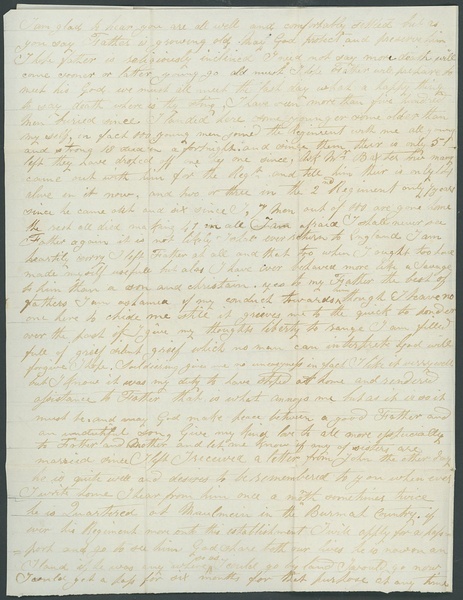 I am glad to hear you are all well and comfortably settled but as
you say Father is growing old, May God protect and preserve him
I hope father is religiously inclined I need not say more death will
come sooner or later young go old must I hope Father will prepare to
meet his God, we must all meet the last day what a happy thing
to say death where is thy sting, I have seen more than five hundred
men buried since I landed here some younger some older than
my self, in fact 100 young men joined the Regiment with me all young
and strong 18 died in a fortnight and since then there is only 31
left they have droped off one by one since, Ask Mr Baxter how many
came out with him for the Regt and tell him ther is only
alive in it now, and two or three in the 2nd Regiment only years
since he came out and six since I, 7 Men out of 100 are gone home
the rest all died making 61 in all I am afraid I shall never see
Father again it is not likely I shall ever return to England I am
heartily sorry I left Father at all and that too when I ought too had
made myself usefull but alas I have ever behaved more like a Savage
to him than a son and christain. yes to my Father the best of
fathers I am ashamed of my conduct towards him though I have no
one here to chide me still it grieves me to the quick to ponder
over the past if I give my thoughts liberty to range I am filled
full of grief silent grief which no man can interpret God will
forgive I hope, Soldiering gives me no uneasyness in fact I like it very well
but I know it was my duty to have stoped at home and rendered
assistance to Father that is what annoys me but as it is so it
must be, and may God make peace between a good Father and
an undutiful son. Give my kind love to all more especially
to Father and Mother and let me know if any of sisters are
married since I left I received a letter from John the other day
he is quite well and desires to be remembered to you when ever
I write home I hear from him once a mth sometimes twice
he is Quartered at Maulmein in the Burmah Cuntry if
ever his Regiment move onto this establishment I will apply for a pass
port and go to see him God spare both our lives he is now on an
Island if he was any where I could go by land I would go now
I would get a pass for six months for that purpose at any time